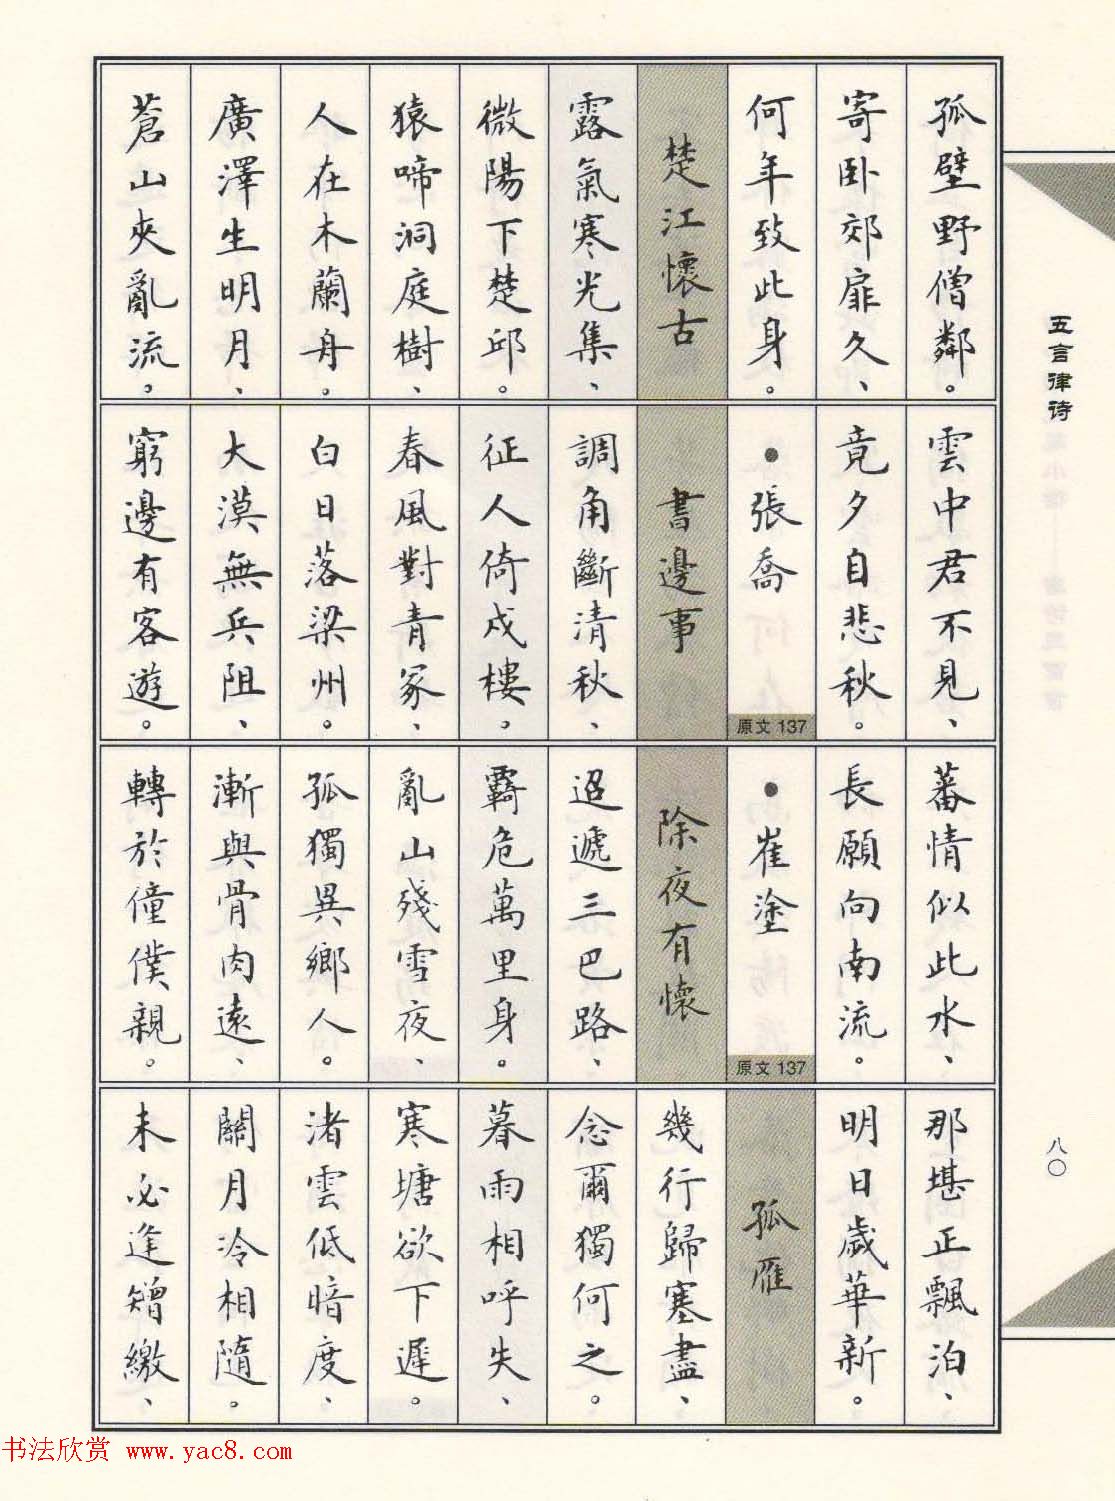 五言律诗
孤壁野僧鄰。
寄卧郊扉久、
何年致此身。
楚江懷古
露氣寒光集、
微陽下楚邱。
猿啼洞庭樹、
人在木蘭舟。
廣澤生明月、
蒼山夾亂流。
雲中君不見、
竟夕自悲秋。
●張喬
原文 137
書邊事
調角斷清秋、
征人倚戍樓。
春風對青冢、
白日落梁州。
大漠無兵阻、
窮邊有客遊。
蕃情似此水、
長願向南流。
●崔塗
原文 137
除夜有懷
迢遞三巴路、
羈危萬里身。
亂山殘雪夜、
孤獨異鄉人。
漸與骨肉遠、
轉於僮僕親。
那堪正飄泊、
明日歲華新。
孤雁
幾行歸塞盡、
念爾獨何之。
暮雨相呼失、
寒塘欲下遲。
渚雲低暗度、
關月冷相隨。
未必逢矰繳、
八〇
书法欣赏 www.yac8.com